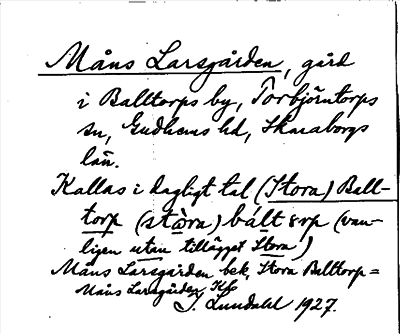 Måns Larsgården, gård
i Balltorps by, Torbjörntorps
sn, Gudhems hd, Skaraborgs
län.
Kallas i dagligt tal (Stora) Ball-
torp (stɷra) bált
(van-
ligen utan tillägget Stora)
Måns Larsgården bek. Stora Balltorp =
Måns Larsgården Kfs
J. Lundahl 1927.